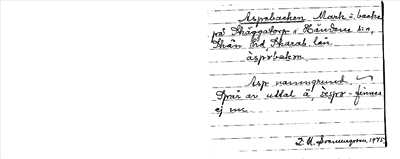 Aspebacken Mark o. backe
på Skäggatorp i Händene sn,
Skån hd, Skarab. län.
àspebakem.
Asp namngrund
Spår av uttal å, åspe finnes
ej mer.
1975.